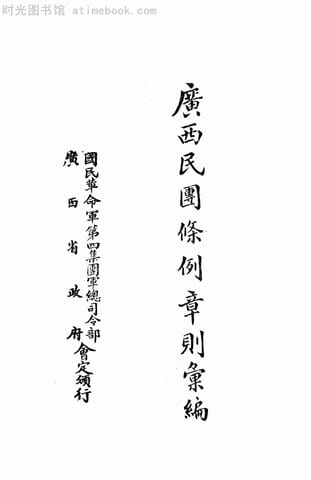 时光图书馆 atimebook.com
廣西民團條例章則彙編
國民革命軍第四集團軍總司令部
廣西省政府
會定頒行